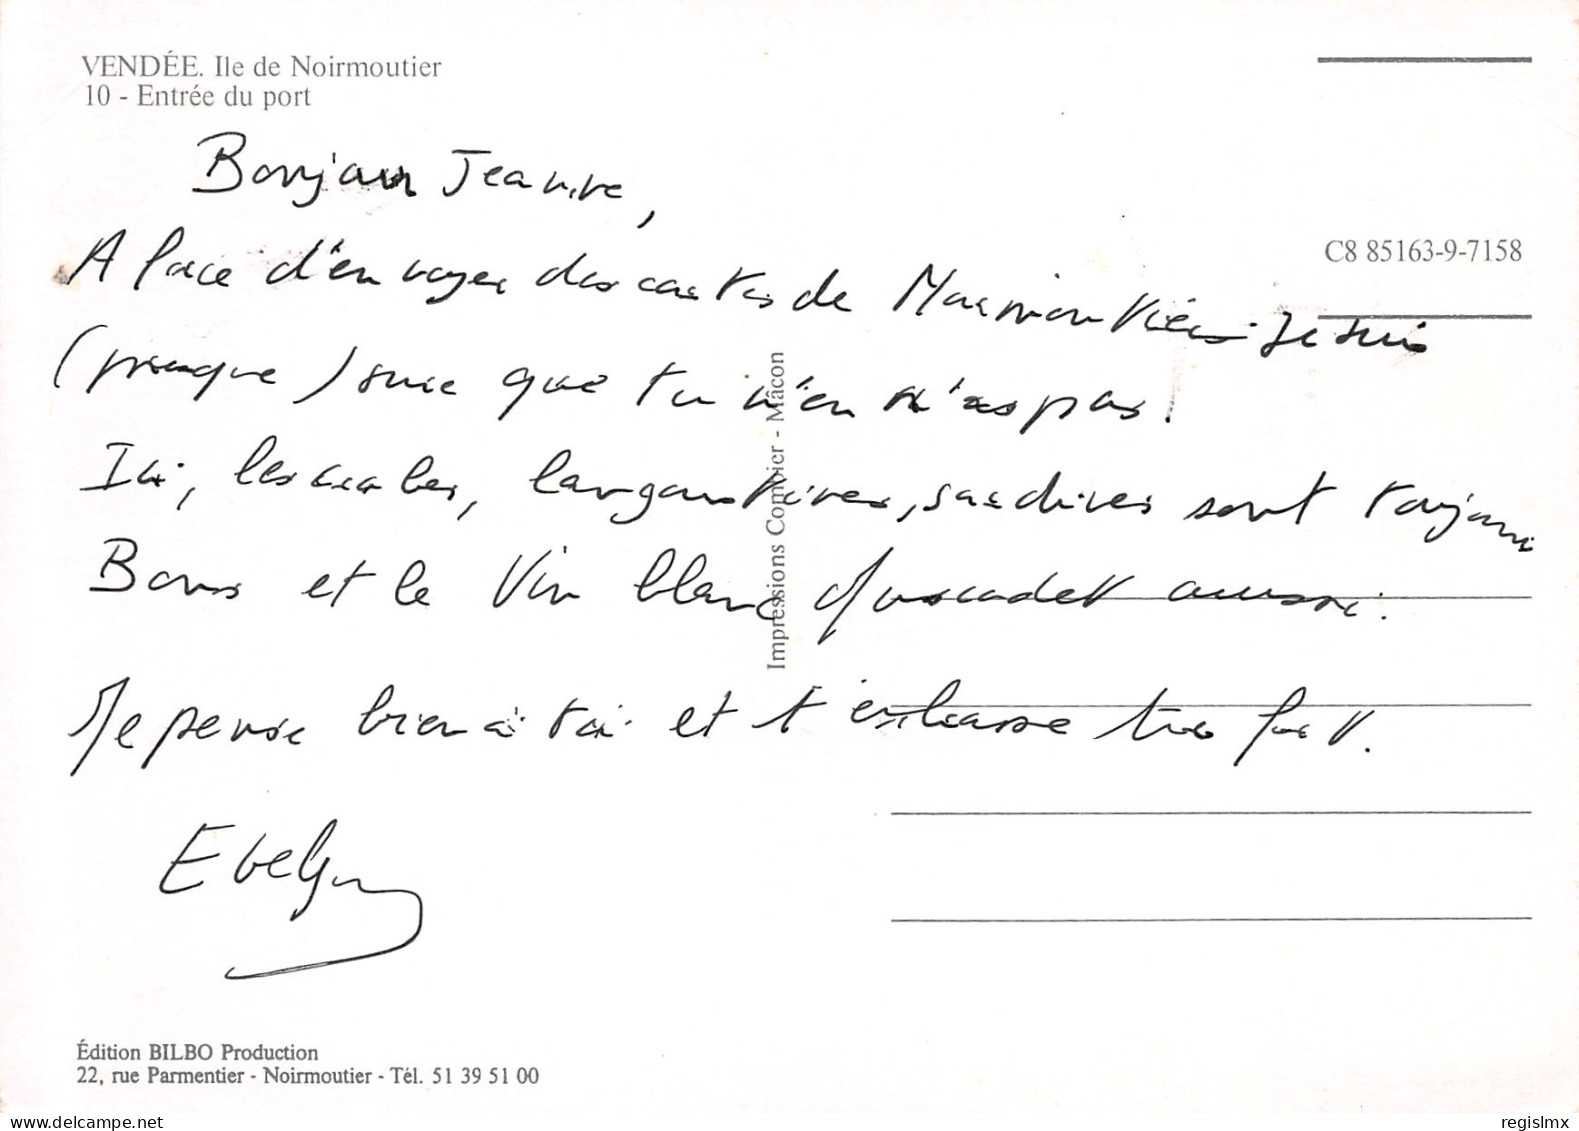 VENDÉE. Ile de Noirmoutier
10 - Entrée du port
C8 85163-9-7158
Bonjour Jeanine,
A force d'envoyer des cartes de Noirmoutier je suis
(presque) sure que tu n'en n'as pas!
Ici, les crabes, langoustines, sardines sont toujours
Bons et le Vin blanc Muscadet aussi.
Je pense bien à toi et t'embrasse très fort.
Evelyne
Impressions Combier - Mâcon
Édition BILBO Production
22, rue Parmentier - Noirmoutier - Tél. 51 39 51 00
regislmx